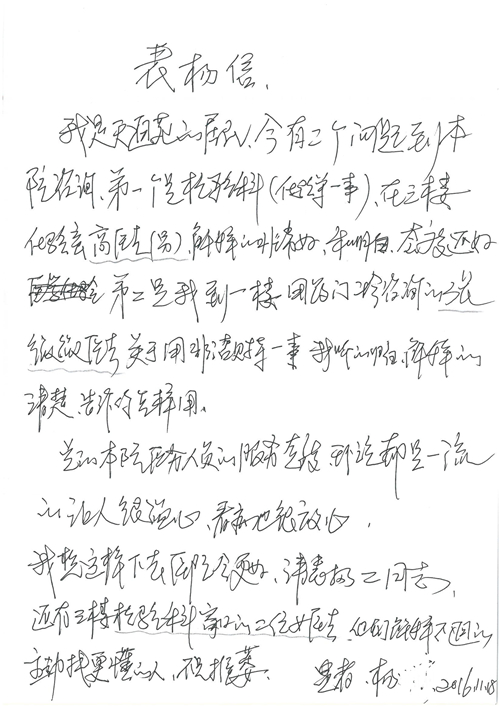 表扬信、
我是天通苑的居民、今有二个问题到本
院咨询、第一个是检验科(化验单一事)、在三楼
化验室高医生(男)、解释的非常好、我明白、态度还好
第二是我到一楼用药门诊咨询的
医生关于用非诺贝特一事 我听的明白、解释的
清楚、告诉你怎样用。
总的本院医务人员的服务态度 都是一流
的 让人很温心、看病也能放心、
我想这样下去医院会更好、请表扬二同志、
还有三楼检验科窗口的二位女医生、他们解释不因的
主动找更懂的人、不推萎、 患者、杨 2016.11.18